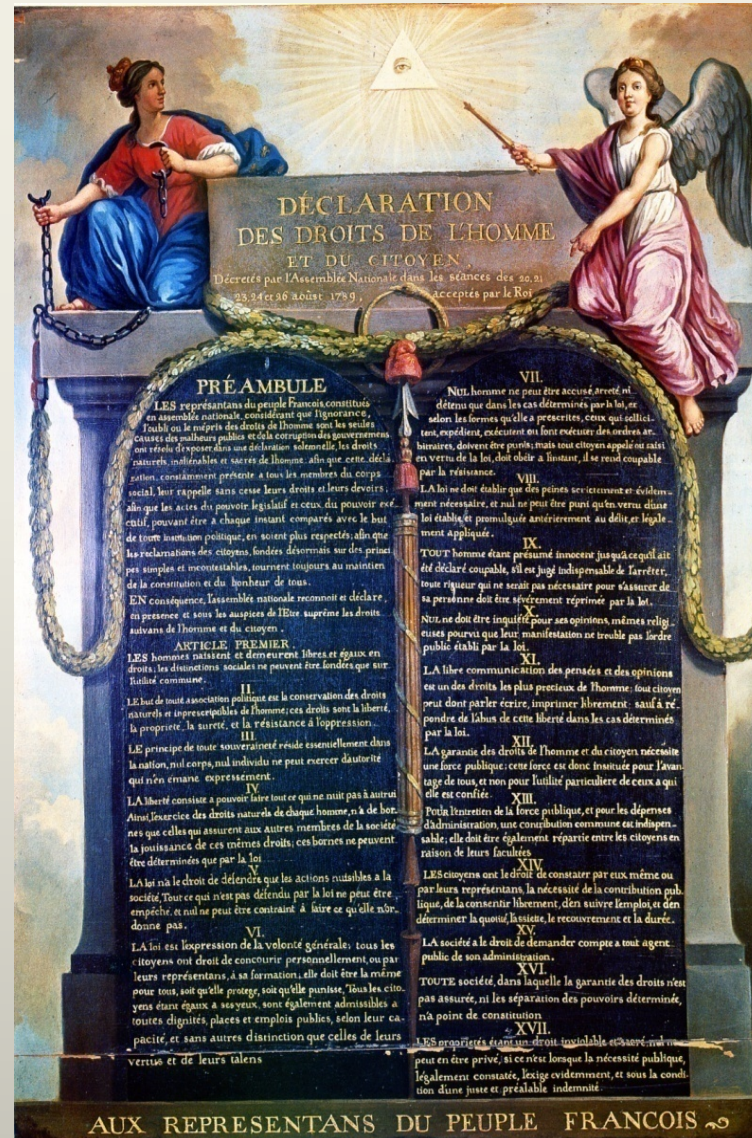 DÉCLARATION
DES DROITS DE L'HOMME
ET DU CITOYEN,
Décretés par l'Assemblée Nationale dans les séances des 20, 21
23, 24 et 26 aoûst 1789, acceptés par le Roi
PRÉAMBULE
LES représentans du peuple Francois, constitués
en assemblée nationale, considérant que l'ignorance,
l'oubli ou le mépris des droits de l'homme sont les seules
causes des malheurs publics et de la corruption des gouvernemens
ont résolu d'exposer dans une déclaration solemnelle, les droits
naturels, inaliénables et sacrés de l'homme; afin que cette décla
ration, constamment présente a tous les membres du corps
social, leur rappelle sans cesse leurs droits et leurs devoirs;
afin que les actes du pouvoir législatif et ceux du pouvoir exé
cutif, pouvant être a chaque instant comparés avec le but
de toute institution politique, en soient plus respectés; afin que
les reclamations des citoyens, fondées désormais sur des princi
pes simples et incontestables, tournent toujours au maintien
de la constitution et du bonheur de tous.
EN conséquence, l'assemblée nationale reconnoit et déclare,
en presence et sous les auspices de l'Etre suprême les droits
suivans de l'homme et du citoyen.
ARTICLE PREMIER.
LES hommes naissent et demeurent libres et égaux en
droits; les distinctions sociales ne peuvent être fondées que sur
l'utilité commune.
II.
LE but de toute association politique est la conservation des droits
naturels et inprescriptibles de l'homme; ces droits sont la liberté,
la propriété, la sureté, et la résistance à l'oppression.
III.
LE principe de toute souveraineté réside essentiellement dans
la nation, nul corps, nul individu ne peut exercer d'autorité
qui n'en émane expressément.
IV.
LA liberté consiste a pouvoir faire tout ce qui ne nuit pas à autrui
Ainsi, l'exercice des droits naturels de chaque homme, n'a de bor-
nes que celles qui assurent aux autres membres de la société
la jouissance de ces mêmes droits; ces bornes ne peuvent
être déterminées que par la loi
V.
LA loi n'a le droit de défendre que les actions nuisibles a la
société, Tout ce qui n'est pas défendu par la loi ne peut être
empêché, et nul ne peut être contraint à faire ce qu'elle n'or-
donne pas.
VI.
LA loi est l'expression de la volonté générale; tous les
citoyens ont droit de concourir personnellement, ou par
leurs représentans, à sa formation; elle doit être la même
pour tous, soit qu'elle protege, soit qu'elle punisse, Tous les cito-
yens étant égaux a ses yeux, sont également admissibles a
toutes dignités, places et emplois publics, selon leur ca-
pacité, et sans autres distinction que celles de leurs
vertus et de leurs talens
VII.
NUL homme ne peut être accusé, arreté, ni
détenu que dans les cas déterminés par la loi, et
selon les formes qu'elle a prescrites, ceux qui sollici-
tent, expédient, exécutent ou font exécuter des ordres ar-
bitraires, doivent être punis; mais tout citoyen appelé ou saisi
en vertu de la loi, doit obéir a l'instant, il se rend coupable
par la résistance.
VIII.
LA loi ne doit établir que des peines strictement et évidem-
ment nécessaire, et nul ne peut être puni qu'en vertu d'une
loi établie et promulguée antérierement au délit, et légale-
ment appliquée.
IX.
TOUT homme étant présumé innocent jusqu'a ce qu'il ait
été déclaré coupable, s'il est jugé indispensable de l'arrêter,
toute rigueur qui ne serait pas nécessaire pour s'assurer de
sa personne doit être sévérement réprimée par la loi.
X.
NUL ne doit être inquiété pour ses opinions, mêmes religi-
euses pourvu que leur manifestation ne trouble pas l'ordre
public établi par la loi.
XI.
LA libre communication des pensées et des opinions
est un des droits les plus precieux de l'homme; tout citoyen
peut dont parler écrire, imprimer librement: sauf à ré-
pondre de l'abus de cette liberté dans les cas déterminés
par la loi.
XII.
LA garantie des droits de l'homme et du citoyen nécessite
une force publique; cette force est donc instituée pour l'avan-
tage de tous, et non pour l'utilité particuliere de ceux a qui
elle est confiée.
XIII.
POUR l'entretien de la force publique, et pour les dépenses
d'administration, une contribution commune est indispen-
sable; elle doit être également répartie entre les citoyens en
raison de leurs facultées
XIV.
LES citoyens ont le droit de constater par eux même ou
par leurs représentans, la nécessité de la contribution pub-
lique, de la consentir librement, d'en suivre l'emploi, et d'en
déterminer la quotité, l'assiette, le recouvrement et la durée.
XV.
LA société a le droit de demander compte a tout agent
public de son administration.
XVI.
TOUTE société, dans laquelle la garantie des droits n'est
pas assurée, ni les séparation des pouvoirs déterminée,
n'a point de constitution
XVII.
LES proprietés étant un droit inviolable et sacré, nul ne
peut en être privé, si ce n'est lorsque la nécessité publique,
légalement constatée, l'exige evidemment, et sous la condi-
tion d'une juste et préalable indemnité.
AUX REPRESENTANS DU PEUPLE FRANCOIS